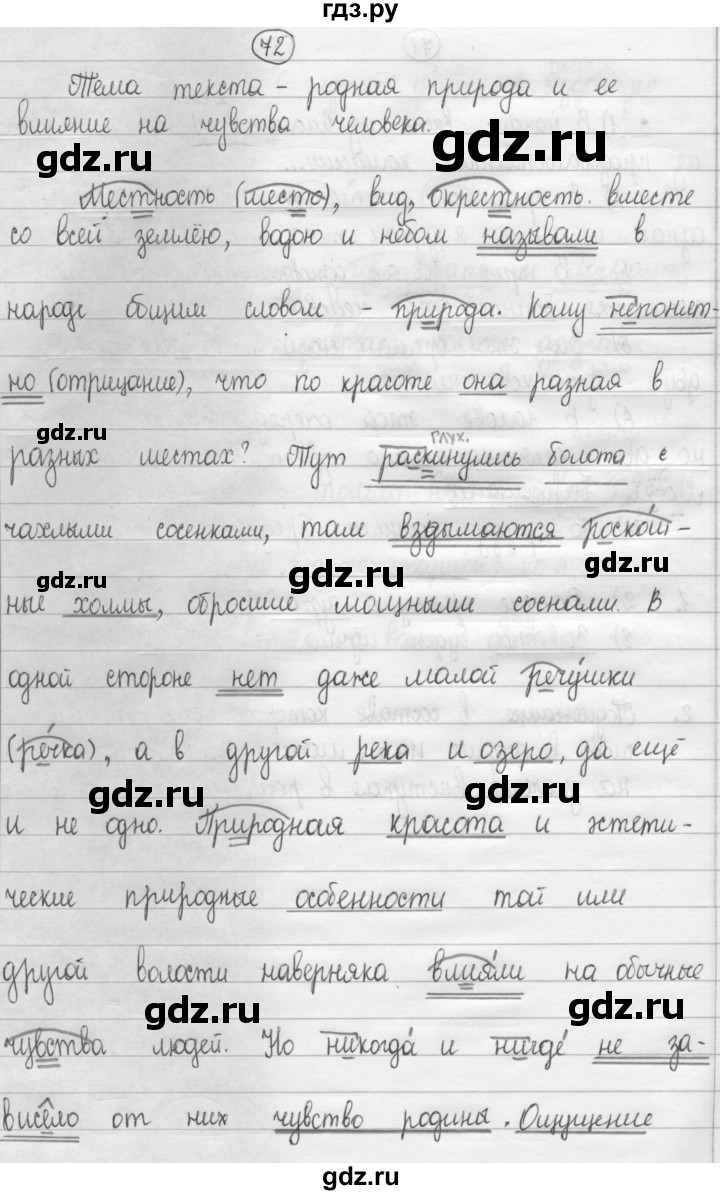 гдз.ру
72
Тема текста - родная природа и ее
влияние на чувства человека.
gdz.ru
gdz.ru
Местность (место), вид, окрестность вместе
со всей землёю, водою и небом называли в
народе общим словом - природа. Кому непонят-
gdz.ru
gdz.ru
но (отрицание), что по красоте она разная в
gdz.ru
глух.
разных местах? Тут раскинулись болота с
чахлыми сосенками, там вздымаются роскош-
gdz.ru
gdz.ru
gdz.ru
ные холмы, обросшие мощными соснами. В
одной стороне нет даже малой речушки
(речка), а в другой река и озеро, да ещё
gdz.ru
gdz.ru
и не одно. Природная красота и эстети-
ческие природные особенности той или
другой волости наверняка влияли на обычные
gdz.ru
gdz.ru
чувства людей. Но никогда и нигде не за-
висело от них чувство родины. Ощущение
gdz.ru